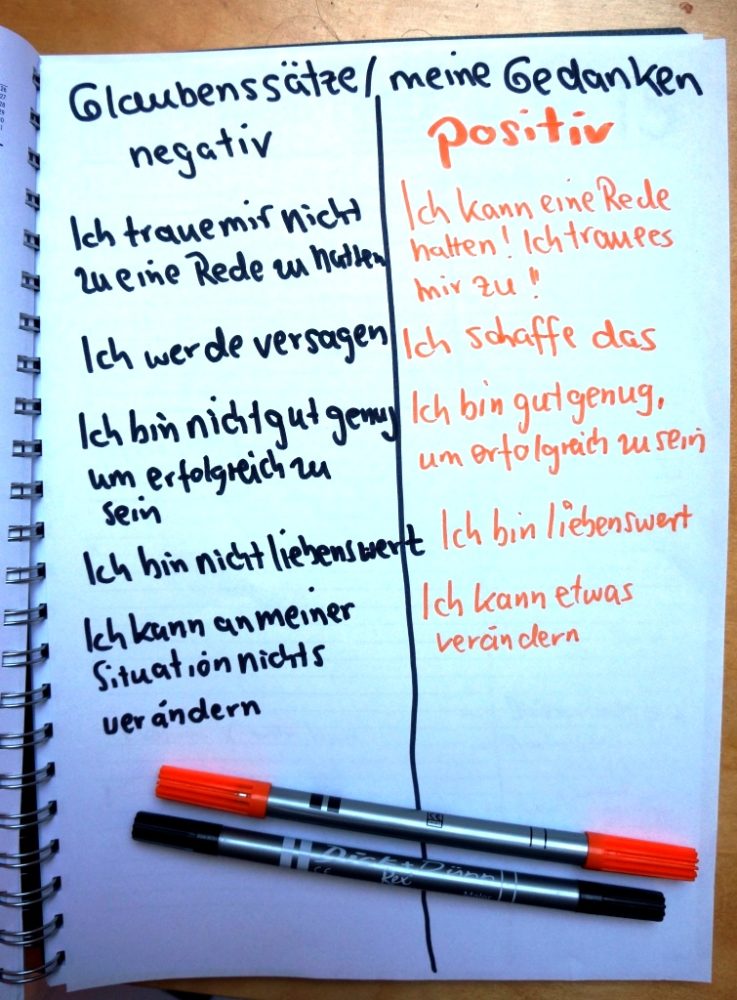 Glaubenssätze / meine Gedanken
negativ
Ich traue mir nicht
zu eine Rede zu halten
Ich werde versagen
Ich bin nicht gut genug
um erfolgreich zu
sein
Ich bin nicht liebenswert
Ich kann an meiner
Situation nichts
verändern
positiv
Ich kann eine Rede
halten! Ich traue es
mir zu!
Ich schaffe das
Ich bin gut genug,
um erfolgreich zu sein
Ich bin liebenswert
Ich kann etwas
verändern
Dick + Dünn